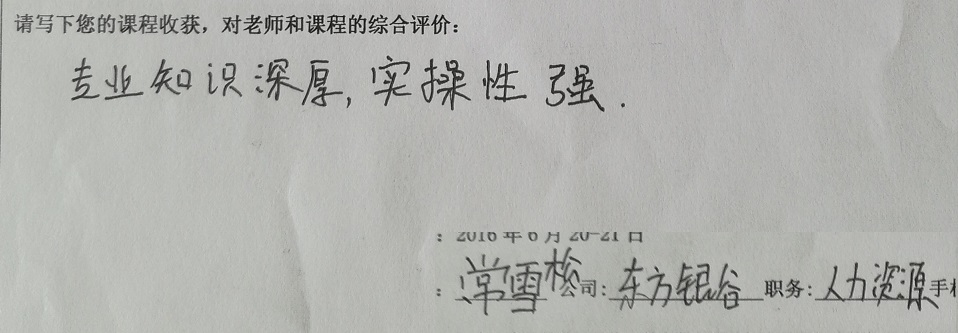 请写下您的课程收获，对老师和课程的综合评价：
专业知识深厚，实操性强.
：2016年6月20-21日
：常雪松 公司：东方银谷 职务：人力资源 手机